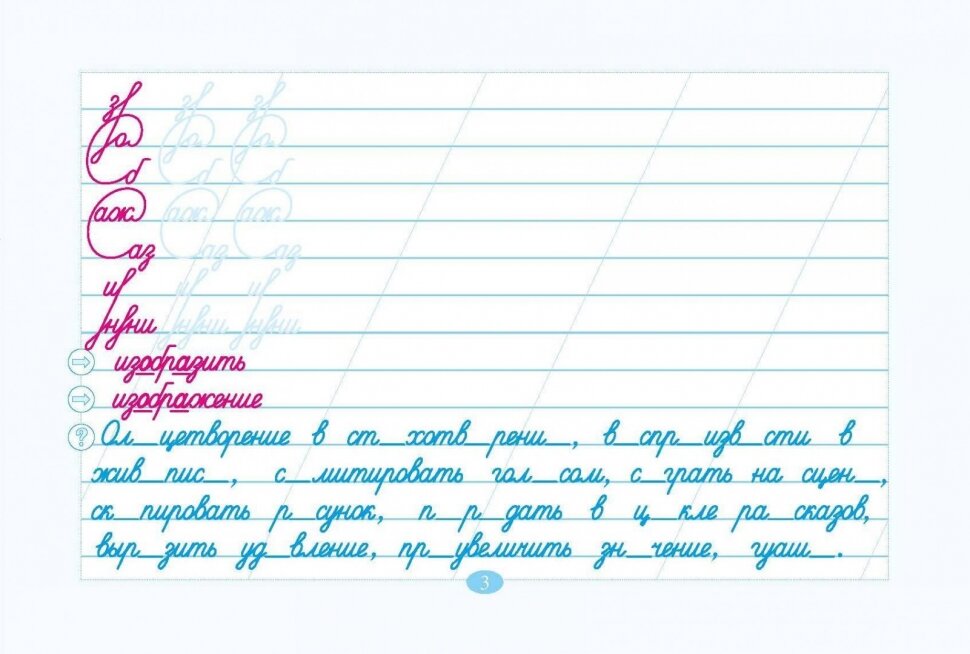 б б б
аж аж аж
аз аз аз
изобразить
изображение
? Ол_цетворение в ст_хотв_рени_, в_спр_изв_сти в
жив_пис_, с_митировать гол_сом, с_грать на сцен_,
ск_пировать р_сунок, п_р_дать в ц_кле ра_сказов,
выр_зить уд_вление, пр_увеличить зн_чение, гуаш_.
3